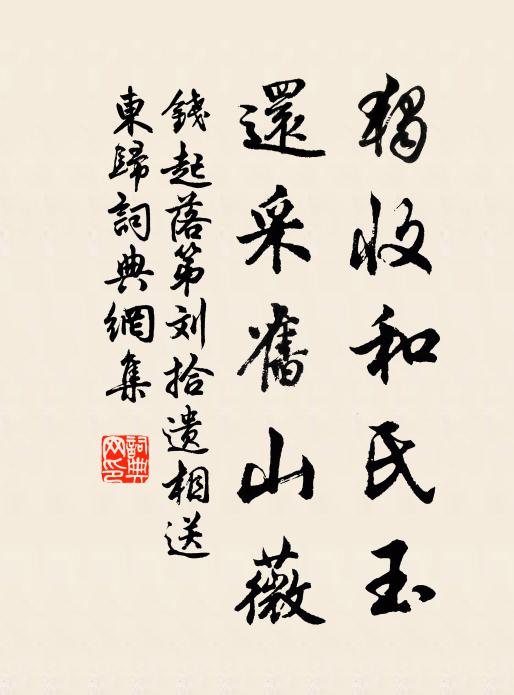 獨收和氏玉
還采舊山薇
錢起落第刘拾遗相送
東歸詞典網集
詞典网印